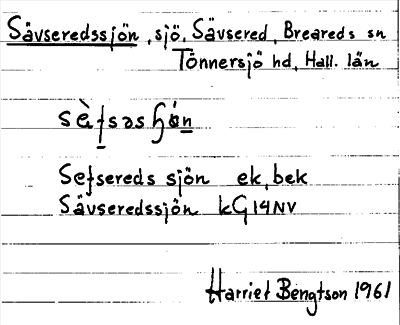 Sävseredssjön, sjö, Sävsered, Breareds sn
Tönnersjö hd, Hall. län
Sefsereds sjön ek, bek
Sävseredssjön kG14NV
Harriet Bengtson 1961